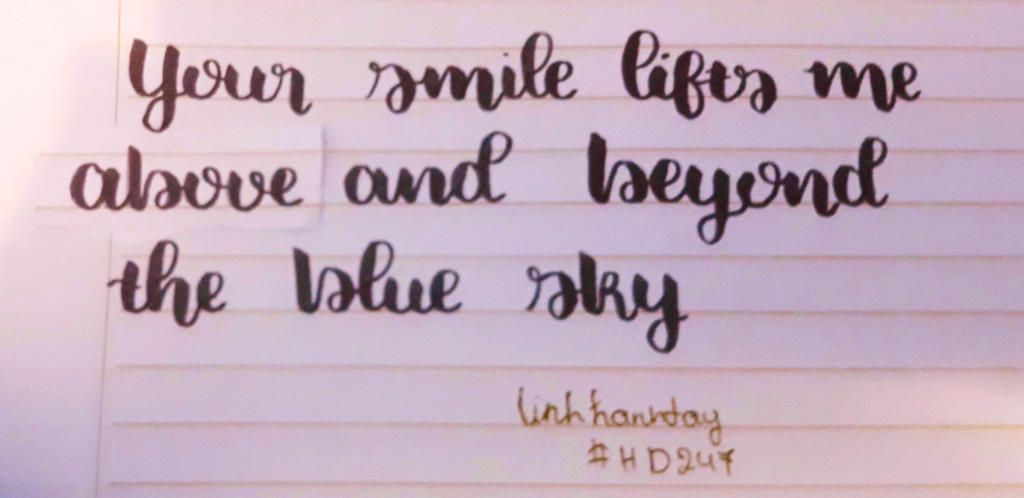 Your smile lifts me
above and beyond
the blue sky
#HD247